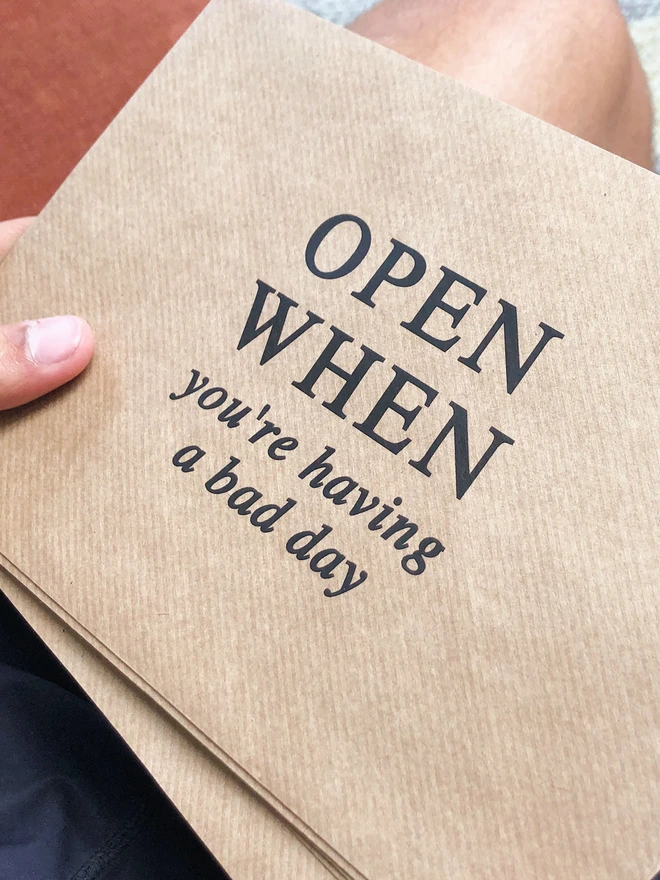 OPEN
WHEN
you're having
a bad day